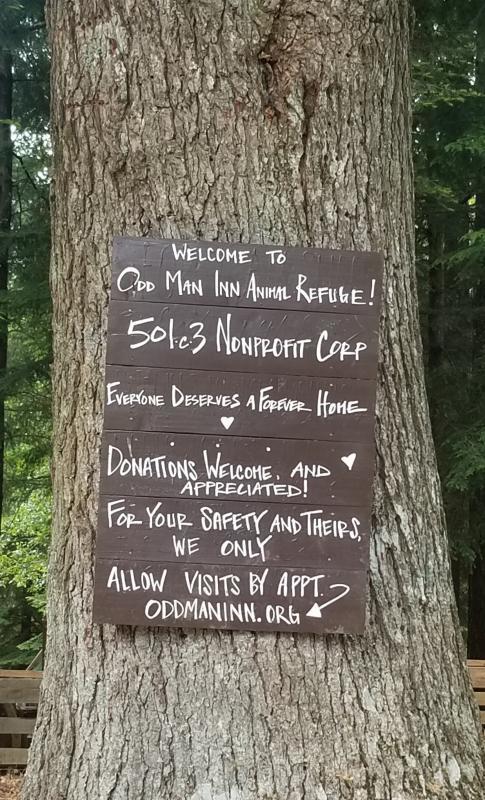 WELCOME TO
ODD MAN INN ANIMAL REFUGE!
501.c.3 NONPROFIT CORP
EVERYONE DESERVES A FOREVER HOME
DONATIONS WELCOME, AND
APPRECIATED!
FOR YOUR SAFETY AND THEIRS,
WE ONLY
ALLOW VISITS BY APPT.
ODDMANINN.ORG